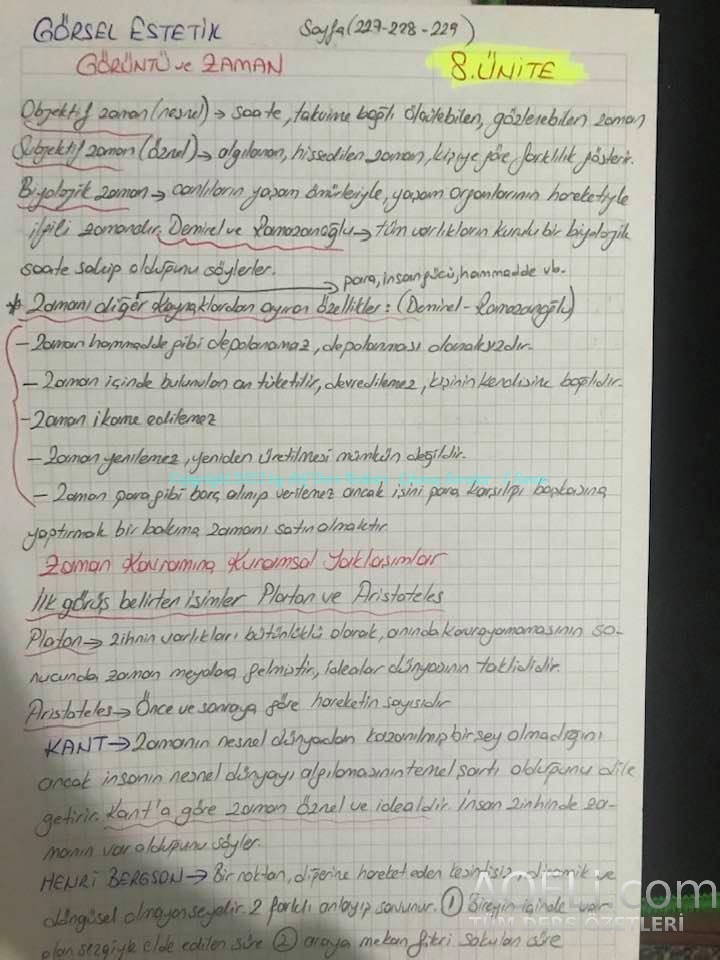 GÖRSEL ESTETİK Sayfa (227-228-229)
GÖRÜNTÜ ve ZAMAN 8. ÜNİTE
Objektif zaman (nesnel) → saate, takvime bağlı ölçülebilen, gözlenebilen zaman
Subjektif zaman (öznel) → algılanan, hissedilen zaman, kişiye göre farklılık gösterir.
Biyolojik zaman → canlıların yaşam ömürleriyle, yaşam organlarının hareketiyle
ilgili zamandır. Demirel ve Ramazanoğlu → tüm varlıkların kurulu bir biyolojik
saate sahip olduğunu söylerler.
→ para, insan gücü, hammadde vb.
* Zamanı diğer kaynaklardan ayıran özellikler: (Demirel-Ramazanoğlu)
- Zaman hammadde gibi depolanamaz, depolanması olanaksızdır.
- Zaman içinde bulunulan an tüketilir, devredilemez, kişinin kendisine bağlıdır.
- Zaman ikame edilemez
- Zaman yenilemez, yeniden üretilmesi mümkün değildir.
- Zaman para gibi borç alınıp verilemez ancak işini para karşılığı başkasına
yaptırmak bir bakıma zamanı satın almaktır.
Zaman Kavramına Kuramsal Yaklaşımlar
İlk görüş belirten isimler Platon ve Aristoteles
Platon → zihnin varlıkları bütünlüklü olarak, anında kavrayamamasının so-
nucunda zaman meydana gelmiştir, idealar dünyasının taklididir.
Aristoteles → Önce ve sonraya göre hareketin sayısıdır
KANT → Zamanın nesnel dünyadan kazanılmış bir şey olmadığını
ancak insanın nesnel dünyayı algılamasının temel şartı olduğunu dile
getirir. Kant'a göre zaman öznel ve idealdir. İnsan zihninde za-
manın var olduğunu söyler.
HENRİ BERGSON → Bir noktan, diğerine hareket eden kesintisiz, dinamik ve
döngüsel olmayan şeydir. 2 farklı anlayışı savunur. ① Bireyin içinde var
olan sezgiyle elde edilen süre ② araya mekan fikri sokulan süre
AOFLi.com
TÜM DERS ÖZETLERİ